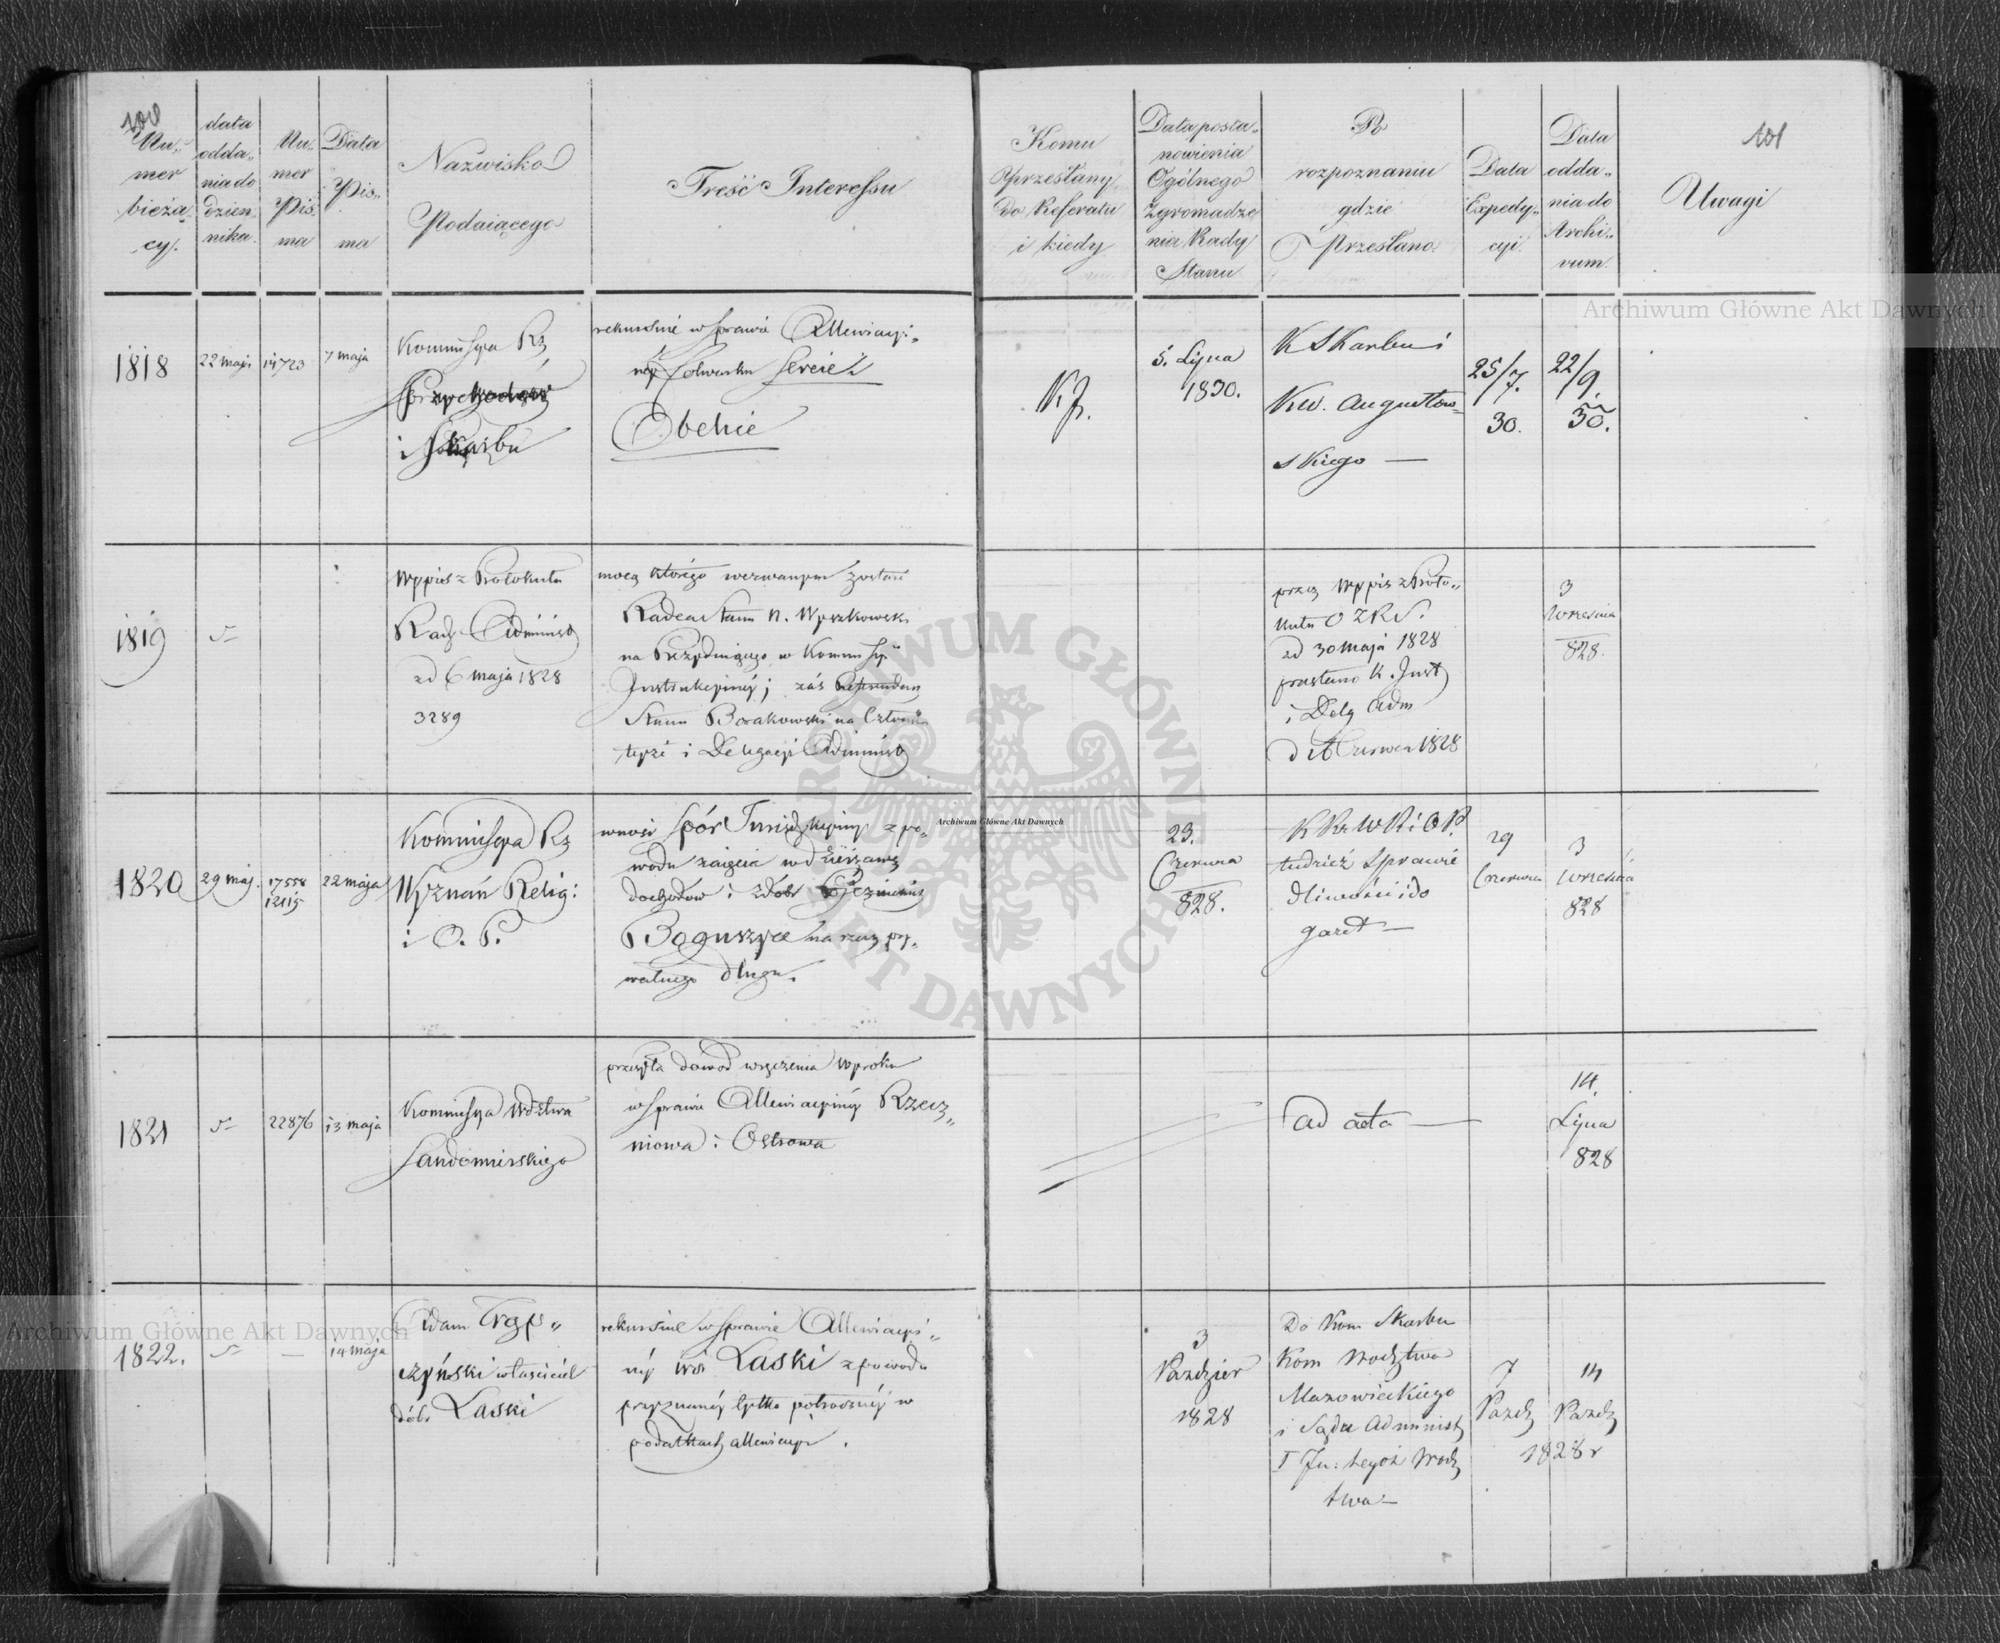 100
Nu-
mer
bieżą-
cy.
data
odda-
nia do
dzien-
nika.
Nu-
mer
Pis-
ma
Data
Pis-
ma
Nazwisko
Podaiącego
Treść Interessu
Komu
Przesłany
do Referatu
i kiedy
Data posta-
nowienia
Ogólnego
Zgromadze
nia Rady
Stanu
Po
rozpoznaniu
gdzie
Przesłano
Data
Expedy-
cyi
Data
odda-
nia do
Archi-
vum.
101
Uwagi
1818
22 maja
7 maja
Kommissya Rz
i Skarbu
rekursuie w sprawie Allewiacyi-
néj folwarku Sereie
Obelice
5. Lipca
1830.
K Skarbu i
K W. Augustow-
skiego —
25/7.
30.
22/9.
30.
1819
Wypis z Protokułu
Rady Administ
od 6 maja 1828
3289
mocą którego wezwanym został
Radca Stanu N. Wyszkowski
na Prezyduiącego w Kommissyi
Instrukcyinéj; zaś Referendarz
Stanu Borakowski na Członka
téyże i Delegacyi Administ
przez Wypis z Proto-
kułu O Z R S.
od 30 maja 1828
przesłano K. Just
i Deleg Adm
Czerwca 1828
3
Września
828.
1820
29 maj.
17558
12115
22 maja
Kommissya Rz
Wyznań Relig:
i O. P.
wnosi spór Jurisdykcyiny z po-
wodu zaięcia w dzierżawę
dochodów z dóbr
Boguszyce na rzecz pry-
watnego długu.
23.
Czerwca
828.
K Rz W R i O P
tudzież Sprawie
dliwości i do
gazet —
29
Czerwca
3
Września
828
1821
22876
13 maja
Kommissya Wdztwa
Sandomirskiego
przesyła dowód wręczenia Wyroku
w sprawie Allewiacyinéj Rzecz-
niowa i Ostrowa
Ad acta —
14
Lipca
828
1822.
—
14 maja
Adam Trzp-
czyński właściciel
dóbr Laski
rekursuie w sprawie Allewiacyi-
néj wsi Laski z powodu
przyznanéj tylko potrocznéj w
podatkach allewiacyi.
3
Paździer
1828
Do Kom Skarbu
Kom Wodztwa
Mazowieckiego
i Sądu Administ
I In: tegoż Wodz
twa —
7
Paźdz
14
Paźdz
1828 r
Archiwum Główne Akt Dawnych
Archiwum Główne Akt Dawnych
Archiwum Główne Akt Dawnych
ARCHIWUM GŁÓWNE AKT DAWNYCH